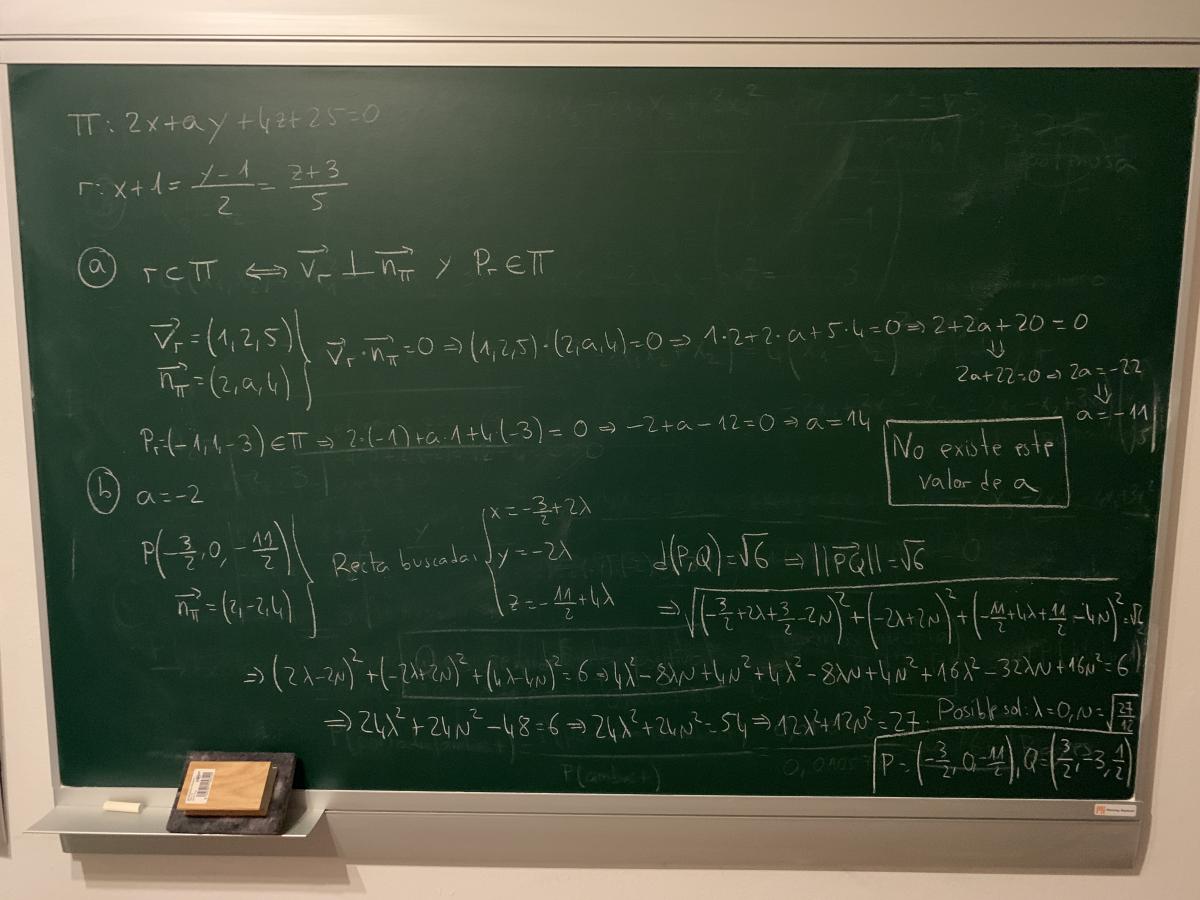 π: 2x+ay+4z+25=0
r: x+1 = (y-1)/2 = (z+3)/5
ⓐ r⊂π ⟺ v⃗r ⊥ n⃗π y Pr∈π
v⃗r=(1,2,5)
n⃗π=(2,a,4)
} v⃗r·n⃗π=0 ⇒ (1,2,5)·(2,a,4)=0 ⇒ 1·2+2·a+5·4=0 ⇒ 2+2a+20=0
⇓
2a+22=0 ⇒ 2a=-22
⇓
a=-11
Pr=(-1,1,-3)∈π ⇒ 2·(-1)+a·1+4(-3)=0 ⇒ -2+a-12=0 ⇒ a=14
No existe este
valor de a
ⓑ a=-2
P(-3/2,0,-11/2)
n⃗π=(2,-2,4)
} Recta buscada: {
x=-3/2+2λ
y=-2λ
z=-11/2+4λ
d(P,Q)=√6 ⇒ ||P⃗Q||=√6
⇒ √((-3/2+2λ+3/2-2N)²+(-2λ+2N)²+(-11/2+4λ+11/2-4N)²)=√6
⇒ (2λ-2N)²+(-2λ+2N)²+(4λ-4N)²=6 ⇒ 4λ²-8λN+4N²+4λ²-8λN+4N²+16λ²-32λN+16N²=6
⇒ 24λ²+24N²-48=6 ⇒ 24λ²+24N²=54 ⇒ 12λ²+12N²=27. Posible sol: λ=0, N=√(27/12)
P=(-3/2,0,-11/2), Q=(3/2,-3,1/2)